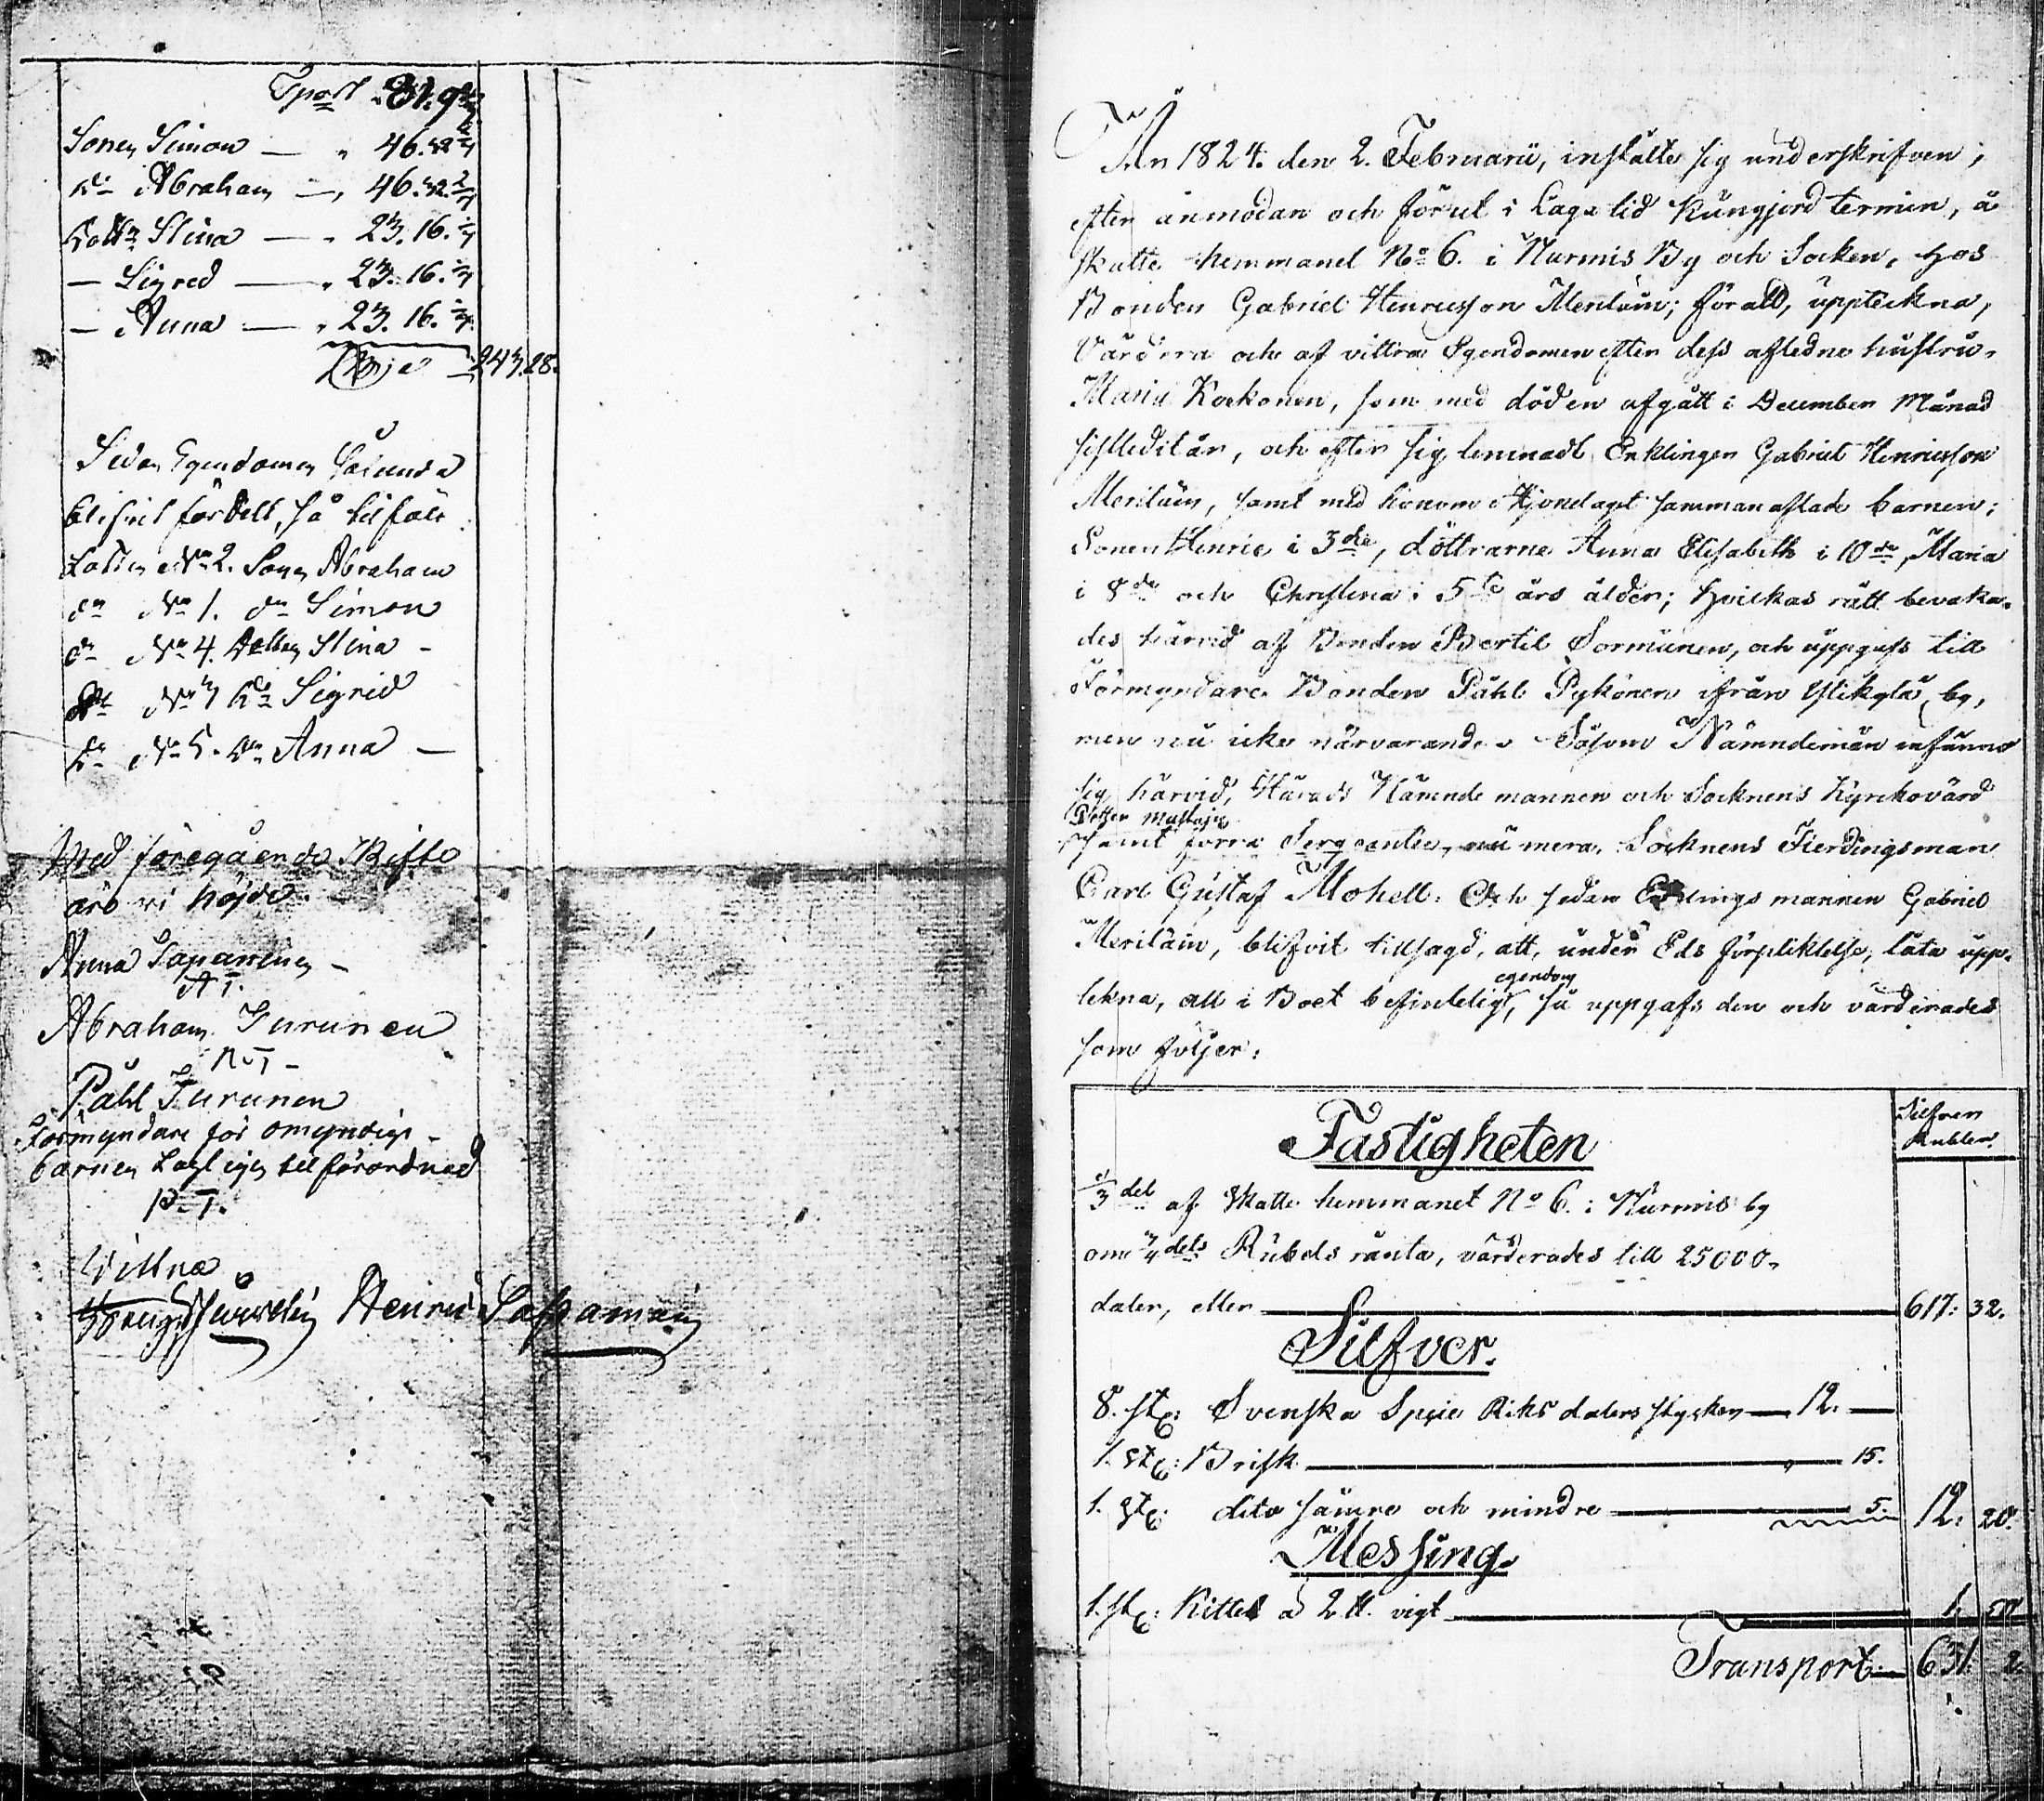 Tport 81. 9
Sonen Simon — " 46. 32 2/7
do Abraham — " 46. 32. 2/7
Dottn Stina — " 23. 16. 1/7
— Sigred — " 23. 16. 1/7
— Anna — " 23. 16. 1/7
243. 28.
Sedan Egendomen Sålunda
blifvit fördelt, så tilföll
Lotten No 2. Sonen Abraham
do No 1. do Simon
do No 4. dottren Stina -
do No 3 do Sigrid
do No 5. do Anna —
Med föregående Skifte
äro vi nöjde.
Anna Saparinen -
A T.
Abraham Turunen
A T -
Påhl Turunen
Förmyndare för omyndige
barnen Lagligen till förordnad
P. T.
Vittna
Henric Saparinen
År 1824. den 2. Februarii, instälte sig underskrifven,
efter anmodan och förut i Laga tid Kungjord termin, å
Skatte hemmanet No 6. i Nurmis By och Socken, hos
Bonden Gabriel Henricsson Meriläin; för att, uppteckna,
Värdera och af vittra Egendomen efter dess afledne hustru,
Maria Korhonen, som med döden afgått i December Månad
sistledit år, och efter sig lemnadt Enklingen Gabriel Henricsson
Meriläin, samt med honom i Hjonelaget sammanaflade barnen;
Sonen Henric i 3die, döttrarne Anna Elisabeth i 10de, Maria
i 8de och Christina i 5te års ålder; hvilkas rätt bevaka-
des härvid af Bonden Bertil Sormunen, och uppgafs till
Förmyndare Bonden Påhl Pykönen ifrån by,
men nu icke närvarande. Såsom Nämndemän infunno
sig härvid, Härads Nämndemannen och Socknens Kyrkovärd
Petter Mustajä
Samt förra Sergeanten, nu mera, Socknens Fierdingsman
Carl Gustaf Mohell. Och sedan Enklingsmannen Gabriel
Meriläin, blifvit tillsagd, att, under Eds förpliktelse, låta upp-
tekna, all i Boet befintelig egendom, så uppgafs den och värderades
som följer:
Fastigheten
Silfver Rubler
1/3 del af Skatte hemmanet No 6. i Nurmis by
om 3/4 dels Rubels ränta, värderades till 25000.
daler, eller — 617: 32.
Silfver.
8. st: Svenska Specie Riksdalers stycken — 12. —
1. st: Brisk — " 15.
1. st: dito sämre och mindre — 5. 12. 20.
Messing.
1. st: Kittel a 2 ℔. vigt — 1. 50
Transport — 631. 2